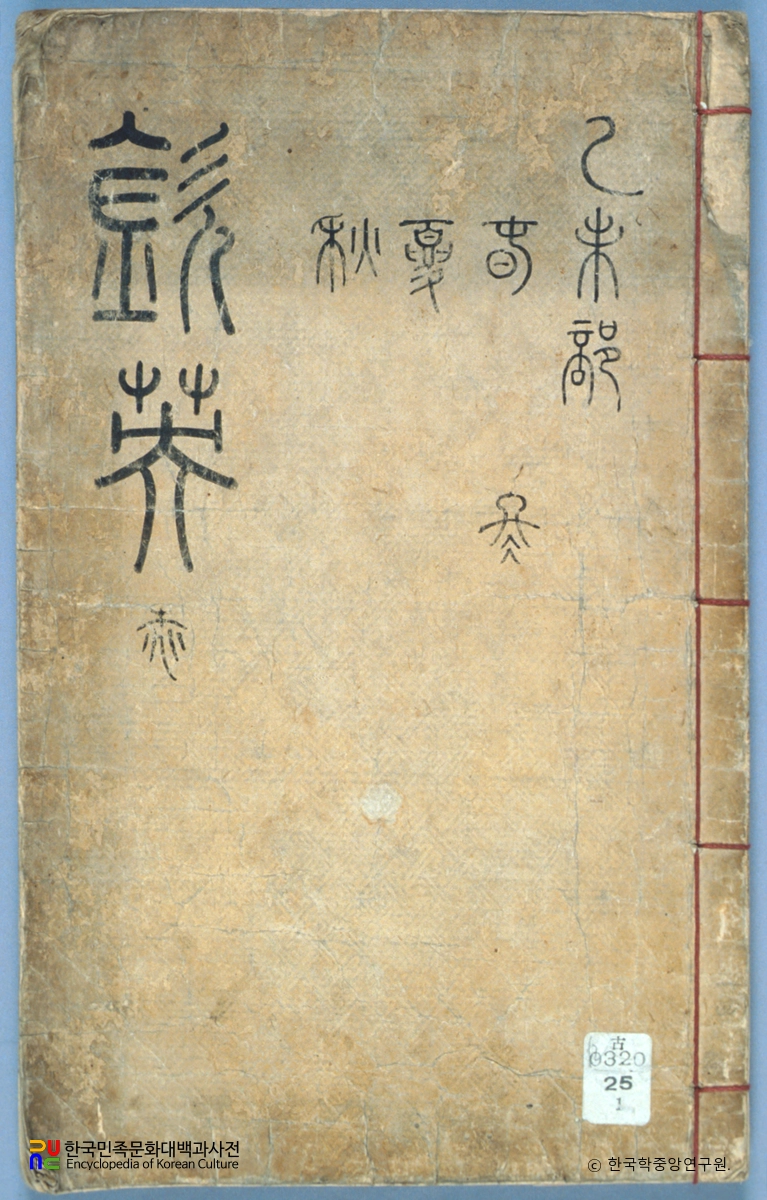 乙未部
春 冬
夏
秋
欽英
古
0320
25
1
한국민족문화대백과사전
Encyclopedia of Korean Culture
© 한국학중앙연구원.